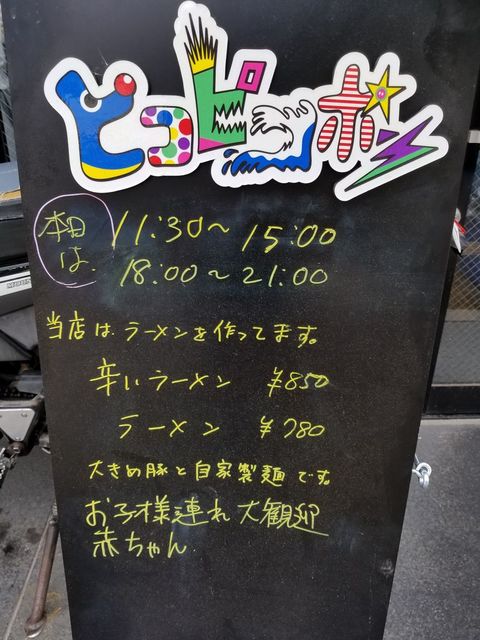 ピコピコポン
本日は 11:30～15:00
18:00～21:00
当店はラーメンを作ってます。
辛いラーメン ¥850
ラーメン ¥780
大きめ豚と自家製麺です。
お子様連れ大観迎
赤ちゃん